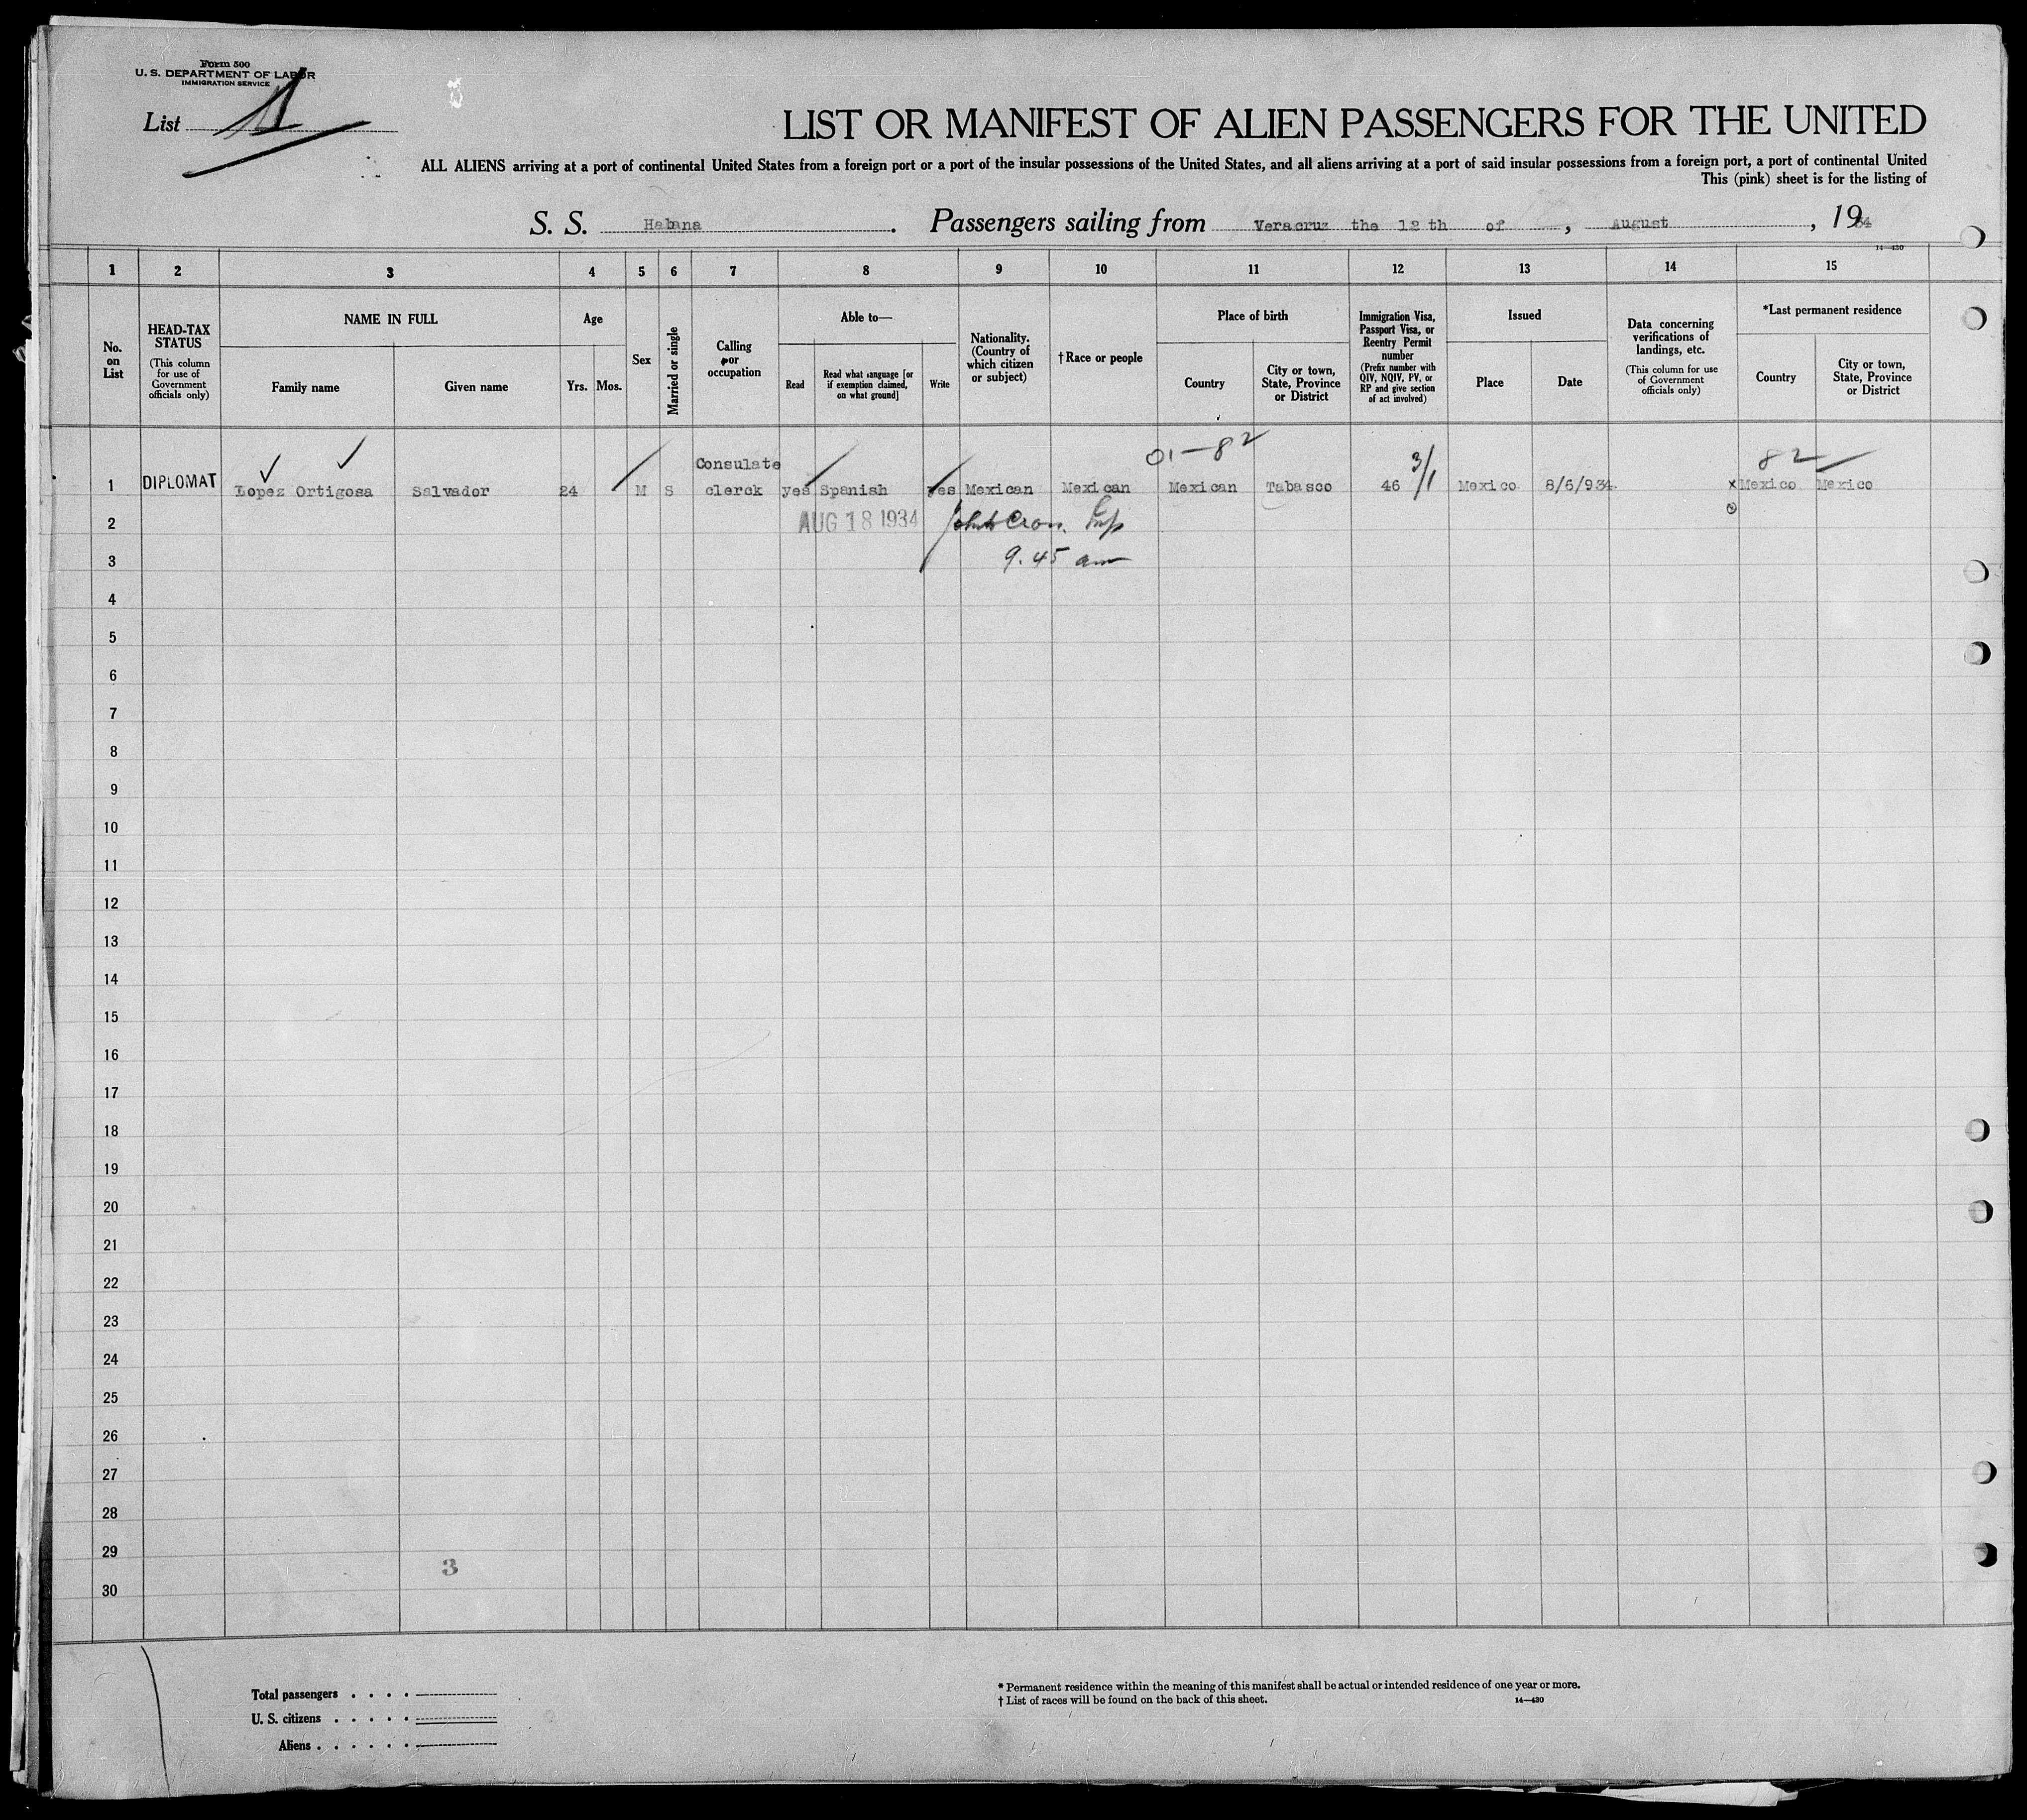 Form 500
U. S. DEPARTMENT OF LABOR
IMMIGRATION SERVICE
List
LIST OR MANIFEST OF ALIEN PASSENGERS FOR THE UNITED
ALL ALIENS arriving at a port of continental United States from a foreign port or a port of the insular possessions of the United States, and all aliens arriving at a port of said insular possessions from a foreign port, a port of continental United
This (pink) sheet is for the listing of
S. S. Habana . Passengers sailing from Veracruz the 12 th of , August , 1934
14—430
1 2 3 4 5 6 7 8 9 10 11 12 13 14 15
No. on List
HEAD-TAX STATUS
(This column for use of Government officials only)
NAME IN FULL
Family name Given name
Age
Yrs. Mos.
Sex
Married or single
Calling or occupation
Able to—
Read
Read what language [or if exemption claimed, on what ground]
Write
Nationality. (Country of which citizen or subject)
†Race or people
Place of birth
Country
City or town, State, Province or District
Immigration Visa, Passport Visa, or Reentry Permit number
(Prefix number with QIV, NQIV, PV, or RP and give section of act involved)
Issued
Place Date
Data concerning verifications of landings, etc.
(This column for use of Government officials only)
*Last permanent residence
Country
City or town, State, Province or District
01-82 3/1 82
Consulate
1 DIPLOMAT Lopez Ortigosa Salvador 24 M S clerck yes Spanish yes Mexican Mexican Mexican Tabasco 46 Mexico 8/6/934 x Mexico Mexico
2 AUG 18 1934
3 9.45 am
4
5
6
7
8
9
10
11
12
13
14
15
16
17
18
19
20
21
22
23
24
25
26
27
28
29 3
30
Total passengers . . . .
U. S. citizens . . . . .
Aliens . . . . . .
* Permanent residence within the meaning of this manifest shall be actual or intended residence of one year or more.
† List of races will be found on the back of this sheet. 14—430